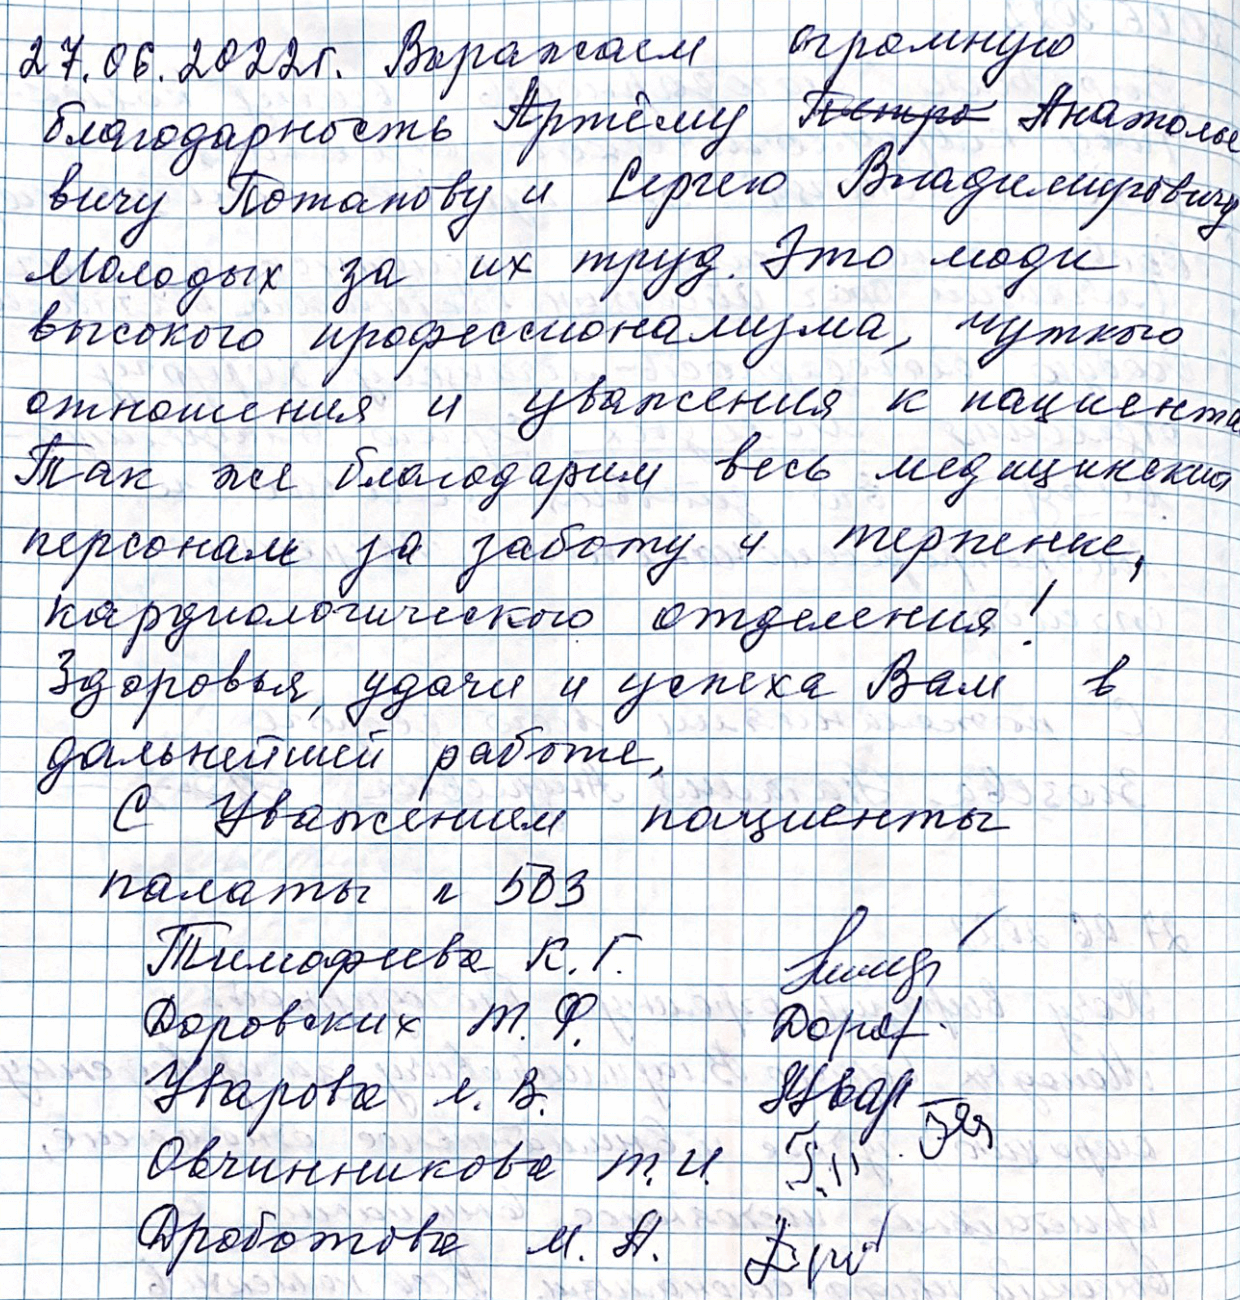 27.06.2022г. Выражаем огромную
благодарность Артёму Анатолье
вичу Потапову и Сергею Владимировичу
Молодых за их труд. Это люди
высокого профессионализма, чуткого
отношения и уважения к пациента
Так же благодарим весь медицинский
персонал за заботу и терпение,
кардиологического отделения!
Здоровья, удачи и успеха Вам в
дальнейшей работе,
С Уважением пациенты
палаты n 503
Тимофеева К.Г.
Доровских Т.Ф. Дор
Уварова Л.В. Увар
Овчинникова Т.И.
Дроботова М.А.